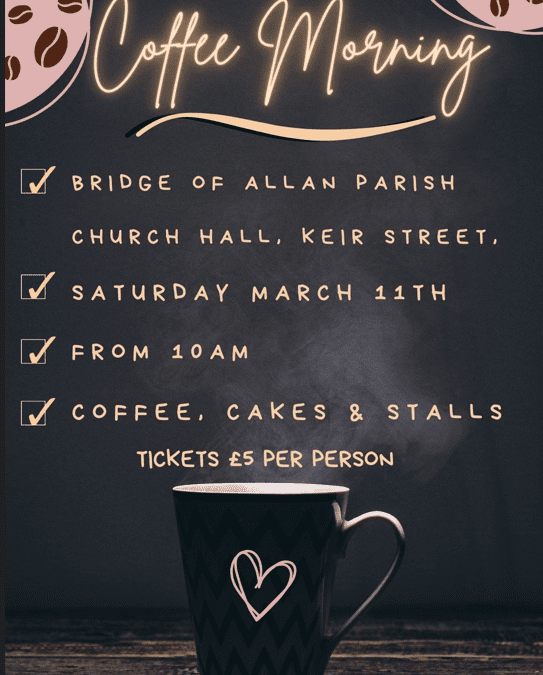 Coffee Morning
BRIDGE OF ALLAN PARISH
CHURCH HALL, KEIR STREET,
SATURDAY MARCH 11TH
FROM 10AM
COFFEE, CAKES & STALLS
TICKETS £5 PER PERSON